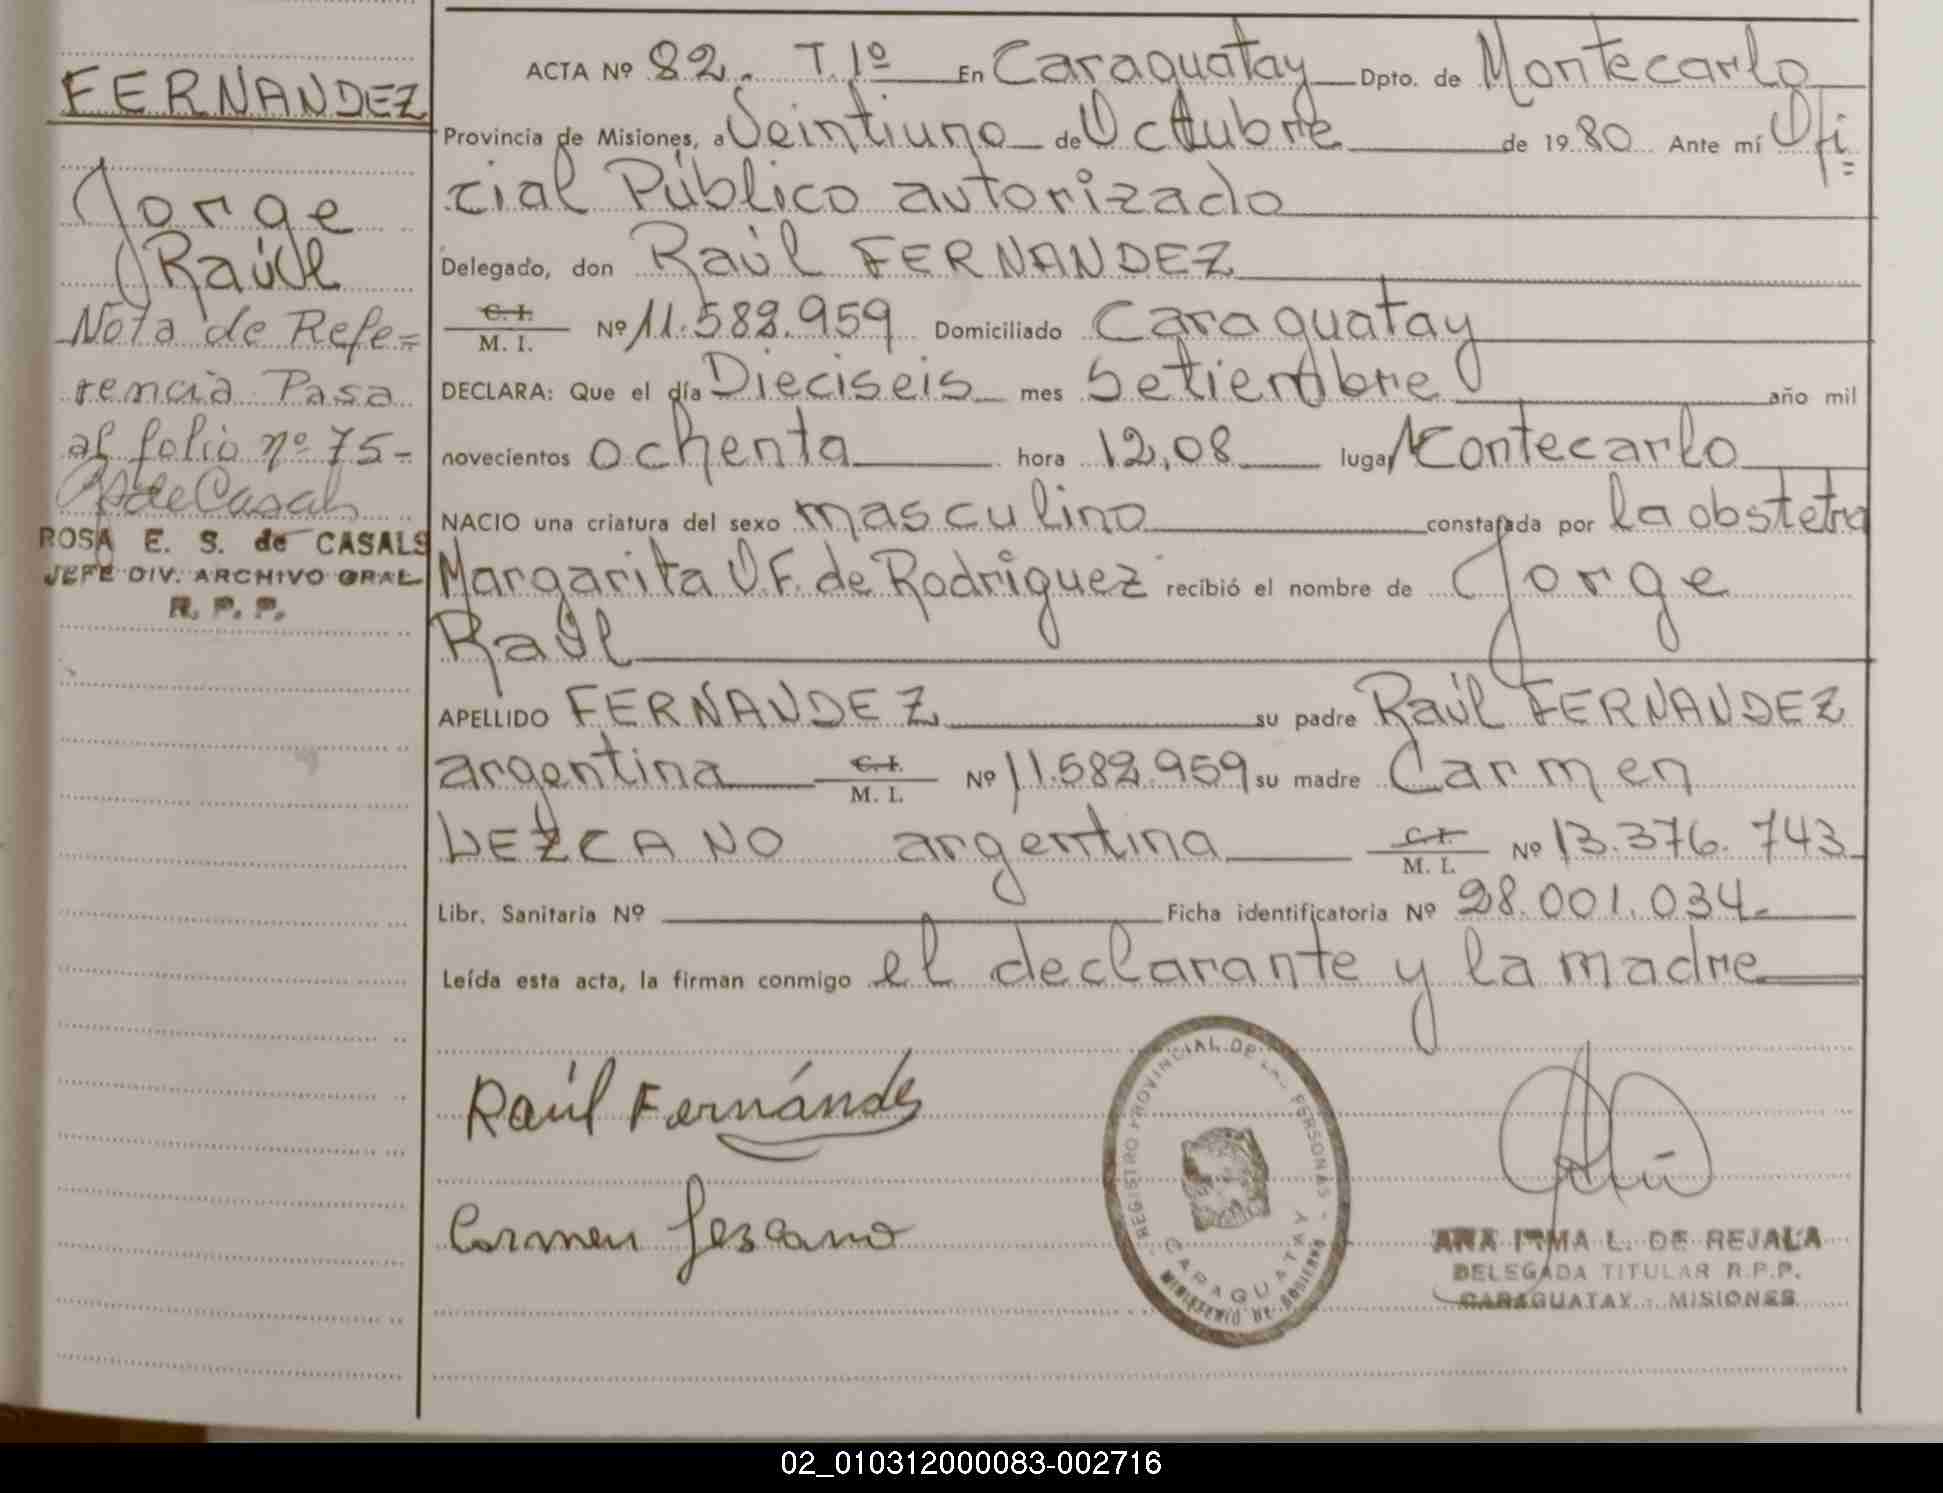 FERNANDEZ
Jorge
Raúl
Nota de Refe=
rencia Pasa
al folio nº 75-
ROSA E. S. de CASALS
JEFE DIV. ARCHIVO GRAL
R. P. P.
ACTA Nº 82. T.1º En Caraguatay Dpto. de Montecarlo
Provincia de Misiones, a Veintiuno de Octubre de 1980 Ante mí Ofi=
cial Público autorizado
Delegado, don Raúl FERNANDEZ
C. I. / M. I. Nº 11.582.959 Domiciliado Caraguatay
DECLARA: Que el día Dieciseis mes Setiembre año mil
novecientos ochenta hora 12,08 lugar Montecarlo
NACIO una criatura del sexo masculino constatada por la obstetra
Margarita O.F. de Rodriguez recibió el nombre de Jorge
Raúl
APELLIDO FERNANDEZ su padre Raúl FERNANDEZ
argentina C. I. / M. I. Nº 11.582.959 su madre Carmen
LEZCANO argentina C. I. / M. I. Nº 13.376.743
Libr. Sanitaria Nº Ficha identificatoria Nº 28.001.034.
Leída esta acta, la firman conmigo el declarante y la madre
Raúl Fernández
Carmen Lezcano
REGISTRO PROVINCIAL DE LAS PERSONAS
CARAGUATAY
MINISTERIO DE GOBIERNO
ANA IRMA L. DE REJALA
DELEGADA TITULAR R.P.P.
CARAGUATAY - MISIONES
02_010312000083-002716